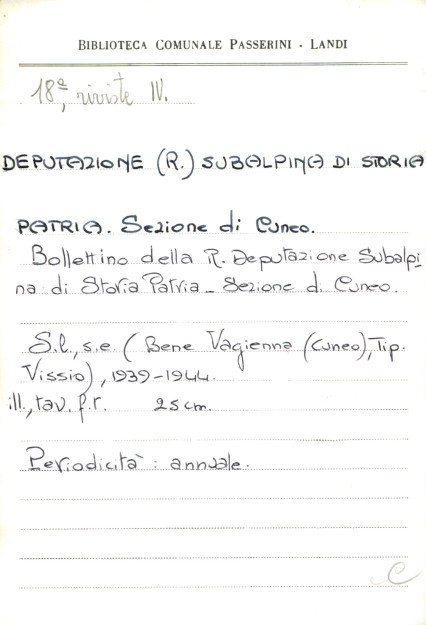 BIBLIOTECA COMUNALE PASSERINI - LANDI
18ª, riviste IV.
DEPUTAZIONE (R.) SUBALPINA DI STORIA
PATRIA. Sezione di Cuneo.
Bollettino della R. Deputazione Subalpi
na di Storia Patria - Sezione di Cuneo.
S.l., s.e. (Bene Vagienna (Cuneo), Tip.
Vissio), 1939-1944.
ill., tav. f.r. 25 cm.
Periodicità: annuale.
C